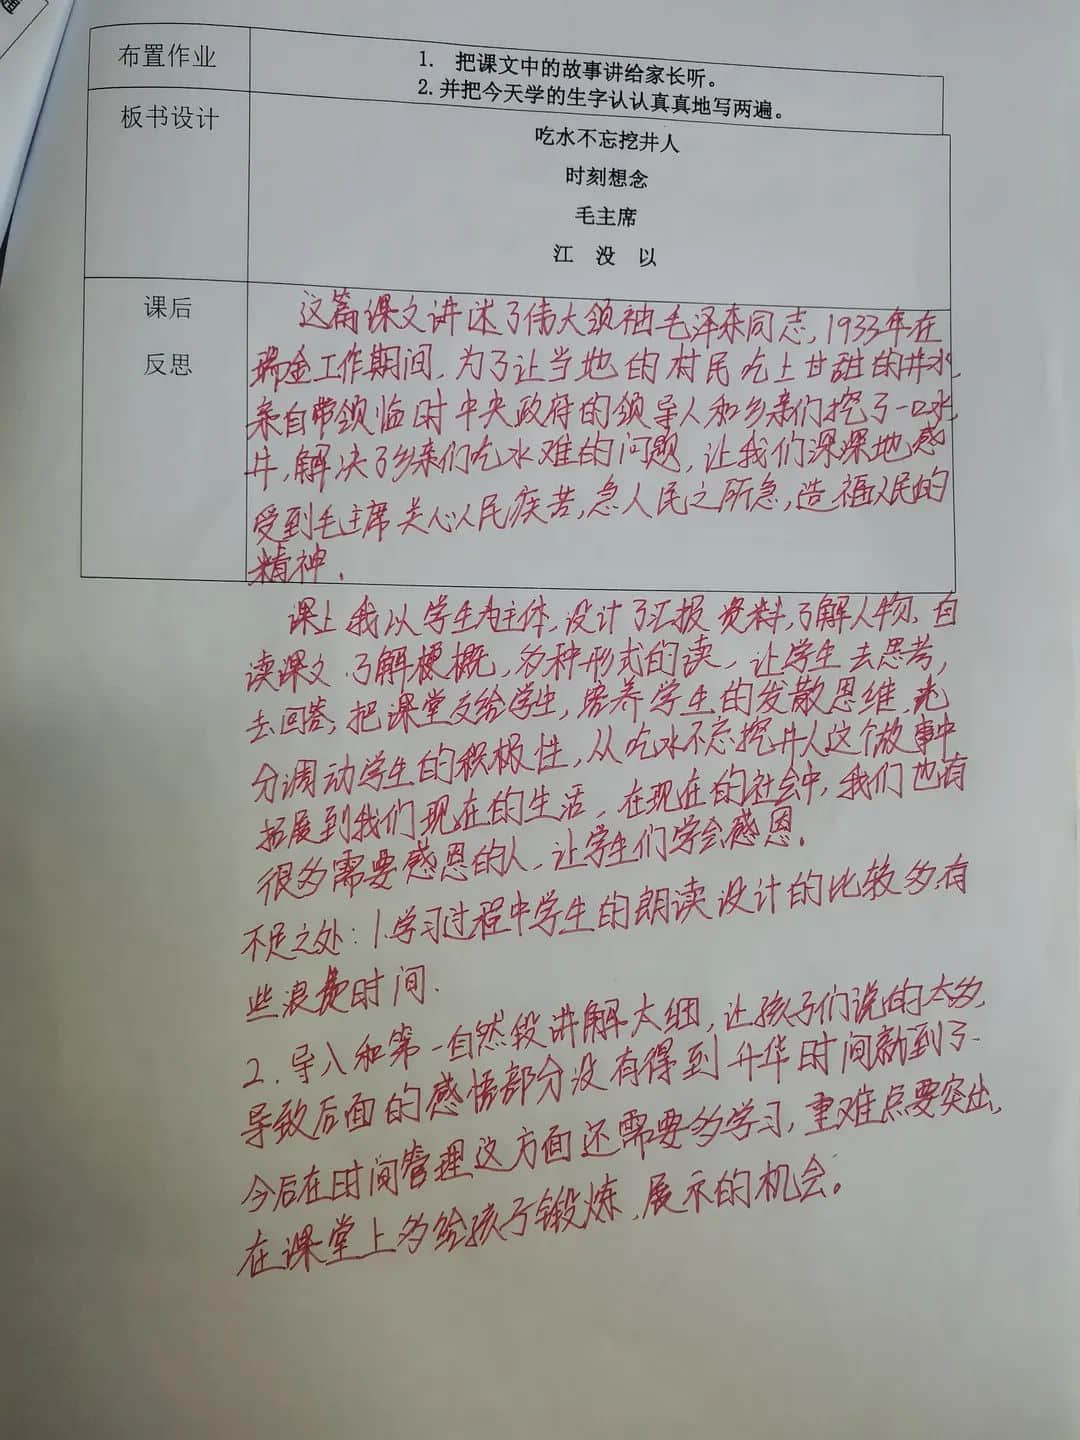 布置作业
1. 把课文中的故事讲给家长听。
2.并把今天学的生字认认真真地写两遍。
板书设计
吃水不忘挖井人
时刻想念
毛主席
江 没 以
课后
反思
这篇课文讲述了伟大领袖毛泽东同志,1933年在
瑞金工作期间,为了让当地的村民吃上甘甜的井水,
亲自带领临时中央政府的领导人和乡亲们挖了一口水
井,解决了乡亲们吃水难的问题,让我们深深地感
受到毛主席关心人民疾苦,急人民之所急,造福人民的
精神.
课上我以学生为主体,设计了汇报资料,了解人物,自
读课文,了解梗概,多种形式的读,让学生去思考,
去回答,把课堂交给学生,培养学生的发散思维,充
分调动学生的积极性,从吃水不忘挖井人这个故事中
拓展到我们现在的生活,在现在的社会中,我们也有
很多需要感恩的人,让学生们学会感恩.
不足之处:1.学习过程中学生的朗读设计的比较多,有
些浪费时间.
2.导入和第一自然段讲解太细,让孩子们说的太多,
导致后面的感悟部分没有得到升华时间就到了.
今后在时间管理这方面还需要多学习,重难点要突出,
在课堂上多给孩子锻炼,展示的机会。